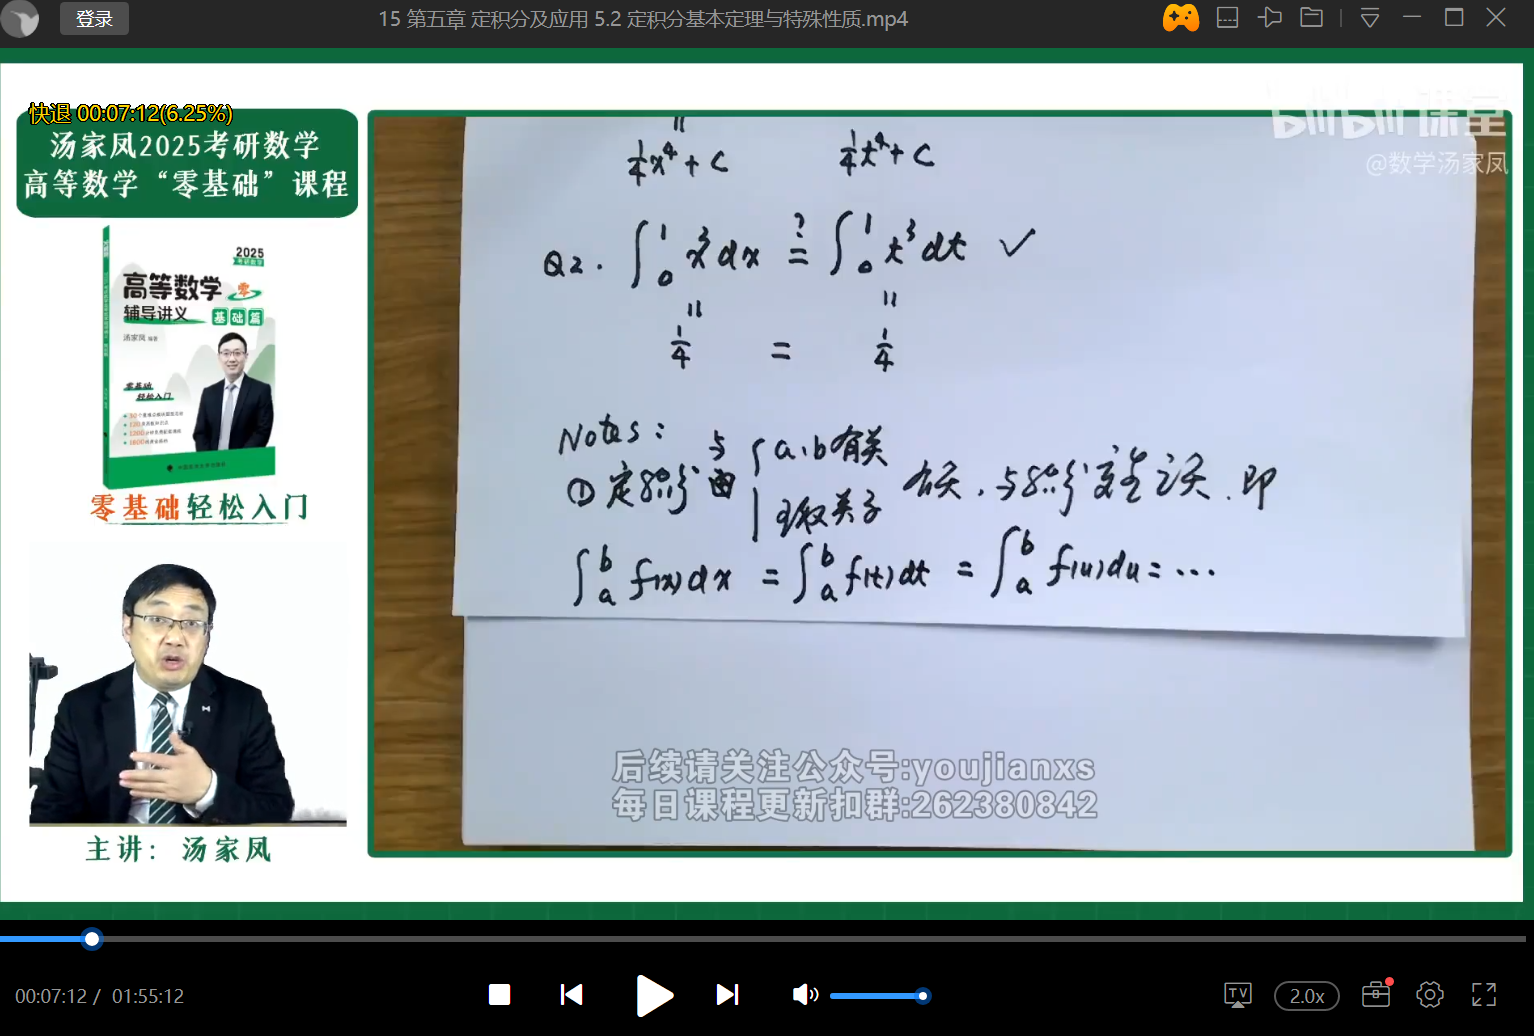 登录
15 第五章 定积分及应用 5.2 定积分基本定理与特殊性质.mp4
快退 00:07:12(6.25%)
汤家凤2025考研数学
高等数学“零基础”课程
2025
高等数学 零
辅导讲义 基础篇
汤家凤 编著
零基础
轻松入门
零基础轻松入门
主讲：汤家凤
bilibili 课堂
@数学汤家凤
1/4 x⁴ + C 1/4 t⁴ + C
Q2. ∫₀¹ x³dx ≟ ∫₀¹ t³dt ✓
1/4 = 1/4
Notes:
① 定积分由与{a、b有关
有关，与积分变量无关，即
∫ₐᵇ f(x)dx = ∫ₐᵇ f(t)dt = ∫ₐᵇ f(u)du = …
后续请关注公众号:youjianxs
每日课程更新扣群:262380842
00:07:12 / 01:55:12
TV
2.0x